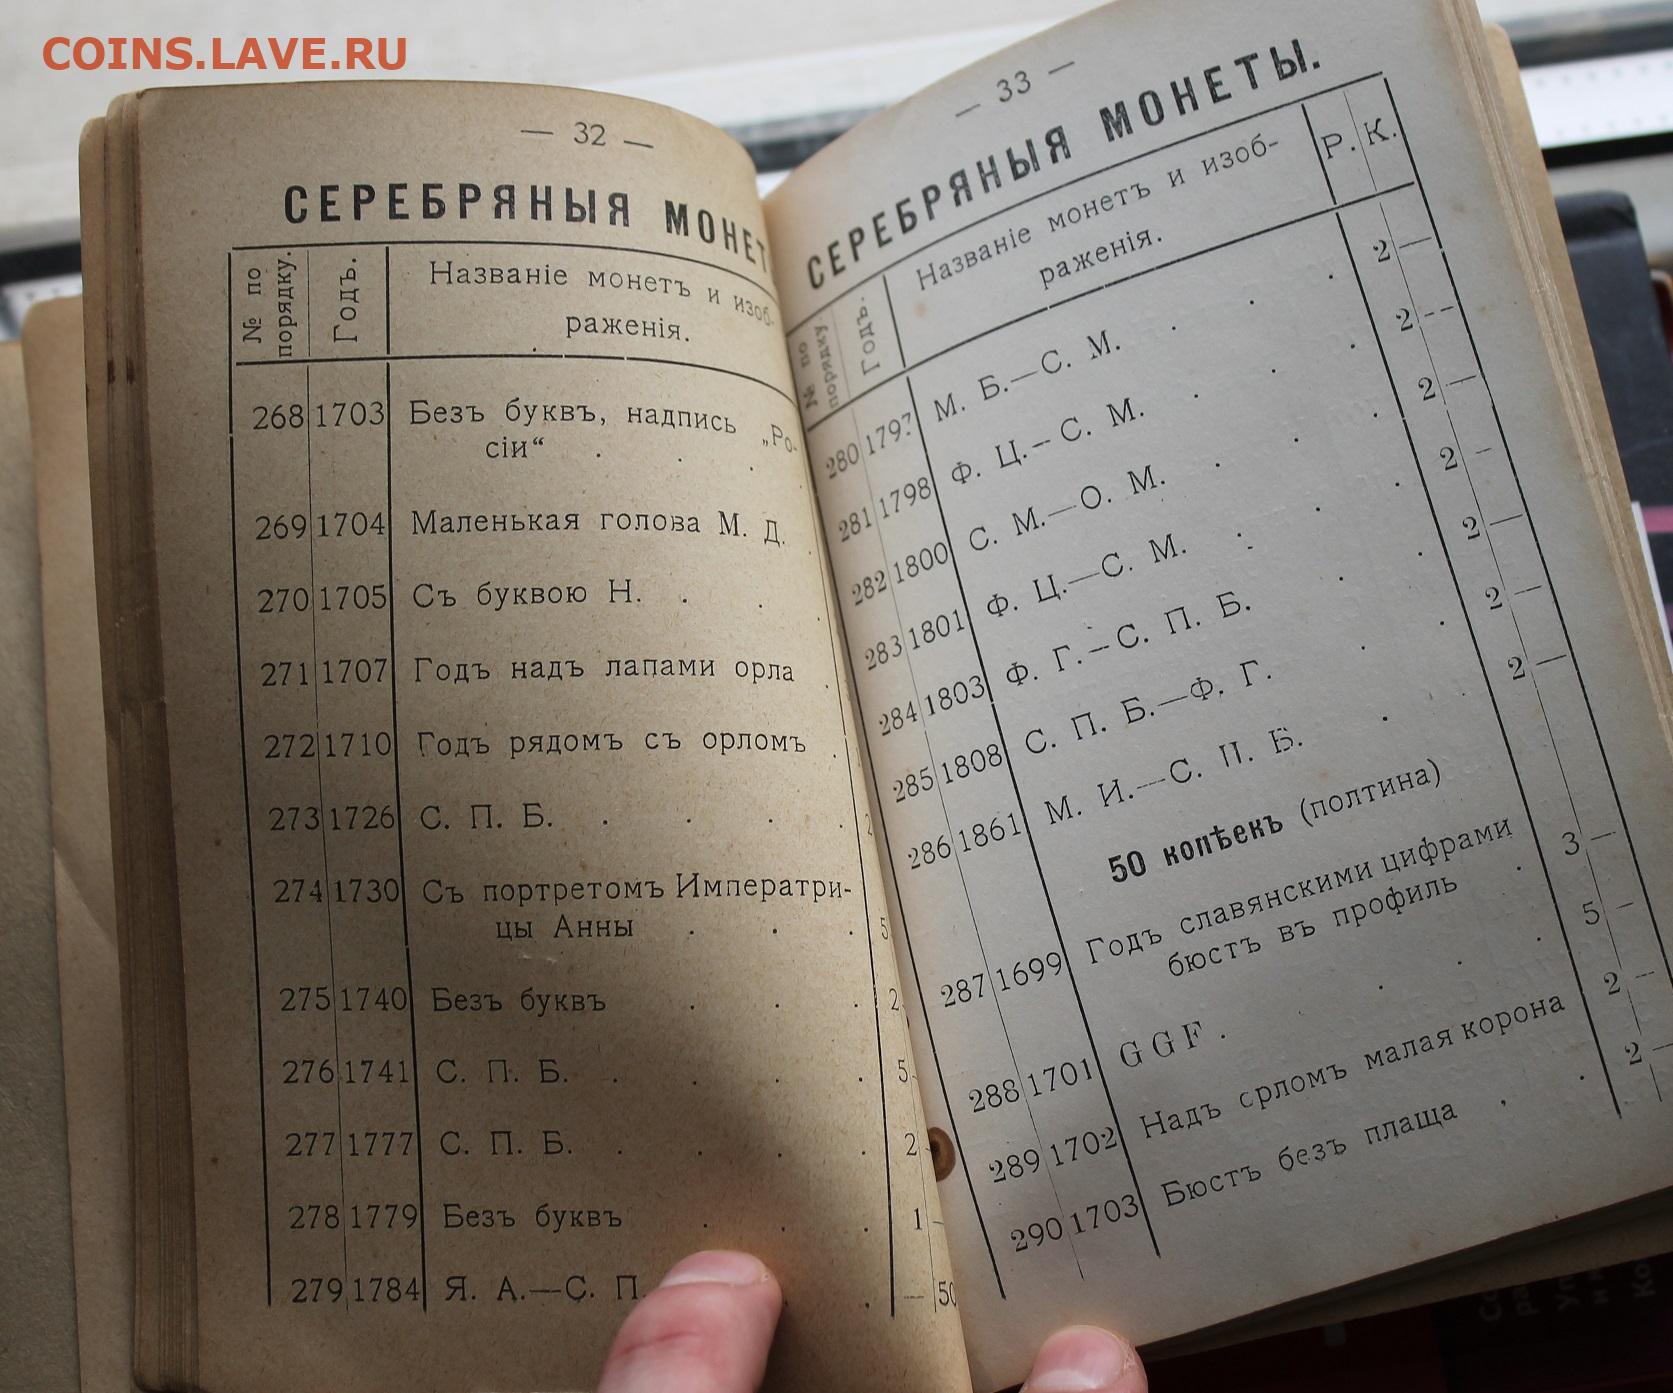 COINS.LAVE.RU
— 32 —
СЕРЕБРЯНЫЯ МОНЕТ
№ по порядку. Годъ. Названіе монетъ и изоб-
раженія.
268 1703 Безъ буквъ, надпись „Ро-
сіи“ . . .
269 1704 Маленькая голова М. Д. .
270 1705 Съ буквою Н. . .
271 1707 Годъ надъ лапами орла .
272 1710 Годъ рядомъ съ орломъ .
273 1726 С. П. Б. . . . . 2
274 1730 Съ портретомъ Императри-
цы Анны . . . 5
275 1740 Безъ буквъ . . . 2
276 1741 С. П. Б. . . . . 5
277 1777 С. П. Б. . . . . 2
278 1779 Безъ буквъ . . . 1 —
279 1784 Я. А.—С. П. . . — 50
— 33 —
СЕРЕБРЯНЫЯ МОНЕТЫ.
№ по порядку Годъ. Названіе монетъ и изоб-
раженія. Р. К.
280 1797 М. Б.—С. М. . . . 2 —
281 1798 Ф. Ц.—С. М. . . . 2 —
282 1800 С. М.—О. М. . . . 2 —
283 1801 Ф. Ц.—С. М. . . . 2 —
284 1803 Ф. Г.—С. П. Б. . . 2 —
285 1808 С. П. Б.—Ф. Г. . . 2 —
286 1861 М. И.—С. П. Б. . . 2 —
50 копѣекъ (полтина)
287 1699 Годъ славянскими цифрами
бюстъ въ профиль . 3 —
288 1701 G G F . . . . 5 —
289 1702 Надъ орломъ малая корона 2 —
290 1703 Бюстъ безъ плаща . . 2 —